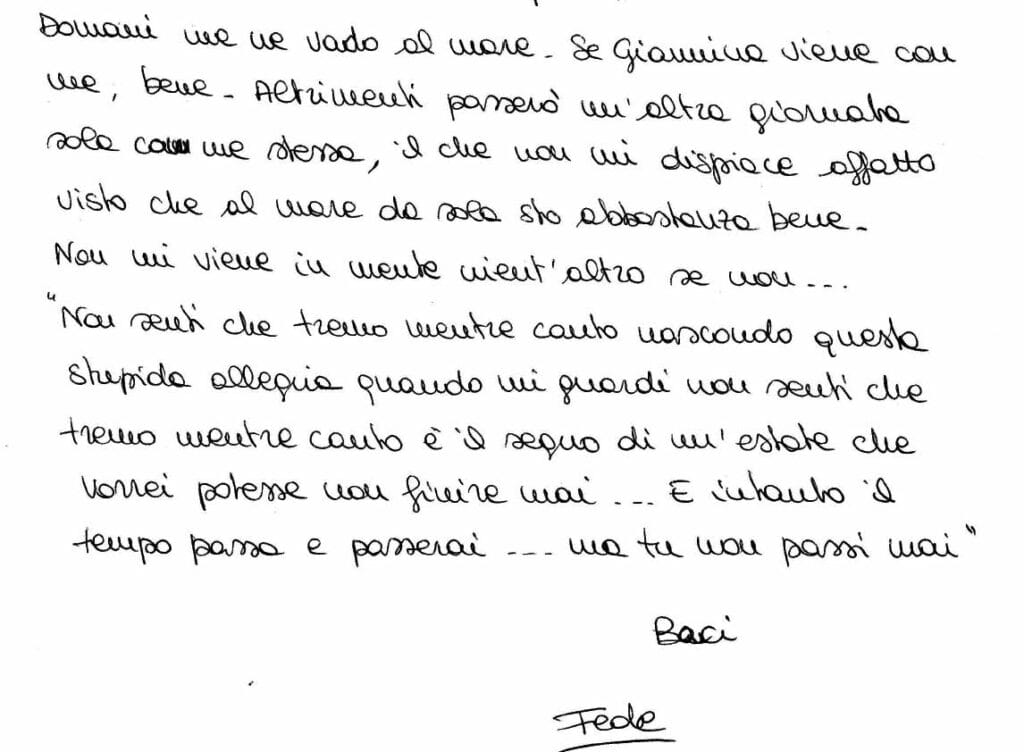 Domani me ne vado al mare. Se Giannina viene con
me, bene. Altrimenti passerò un'altra giornata
sola con me stessa, il che non mi dispiace affatto
visto che al mare da sola sto abbastanza bene.
Non mi viene in mente nient'altro se non...
"Non senti che tremo mentre canto nascondo questa
stupida allegria quando mi guardi non senti che
tremo mentre canto è il segno di un'estate che
vorrei potesse non finire mai... E intanto il
tempo passa e passerai... ma tu non passi mai"
Baci
Fede